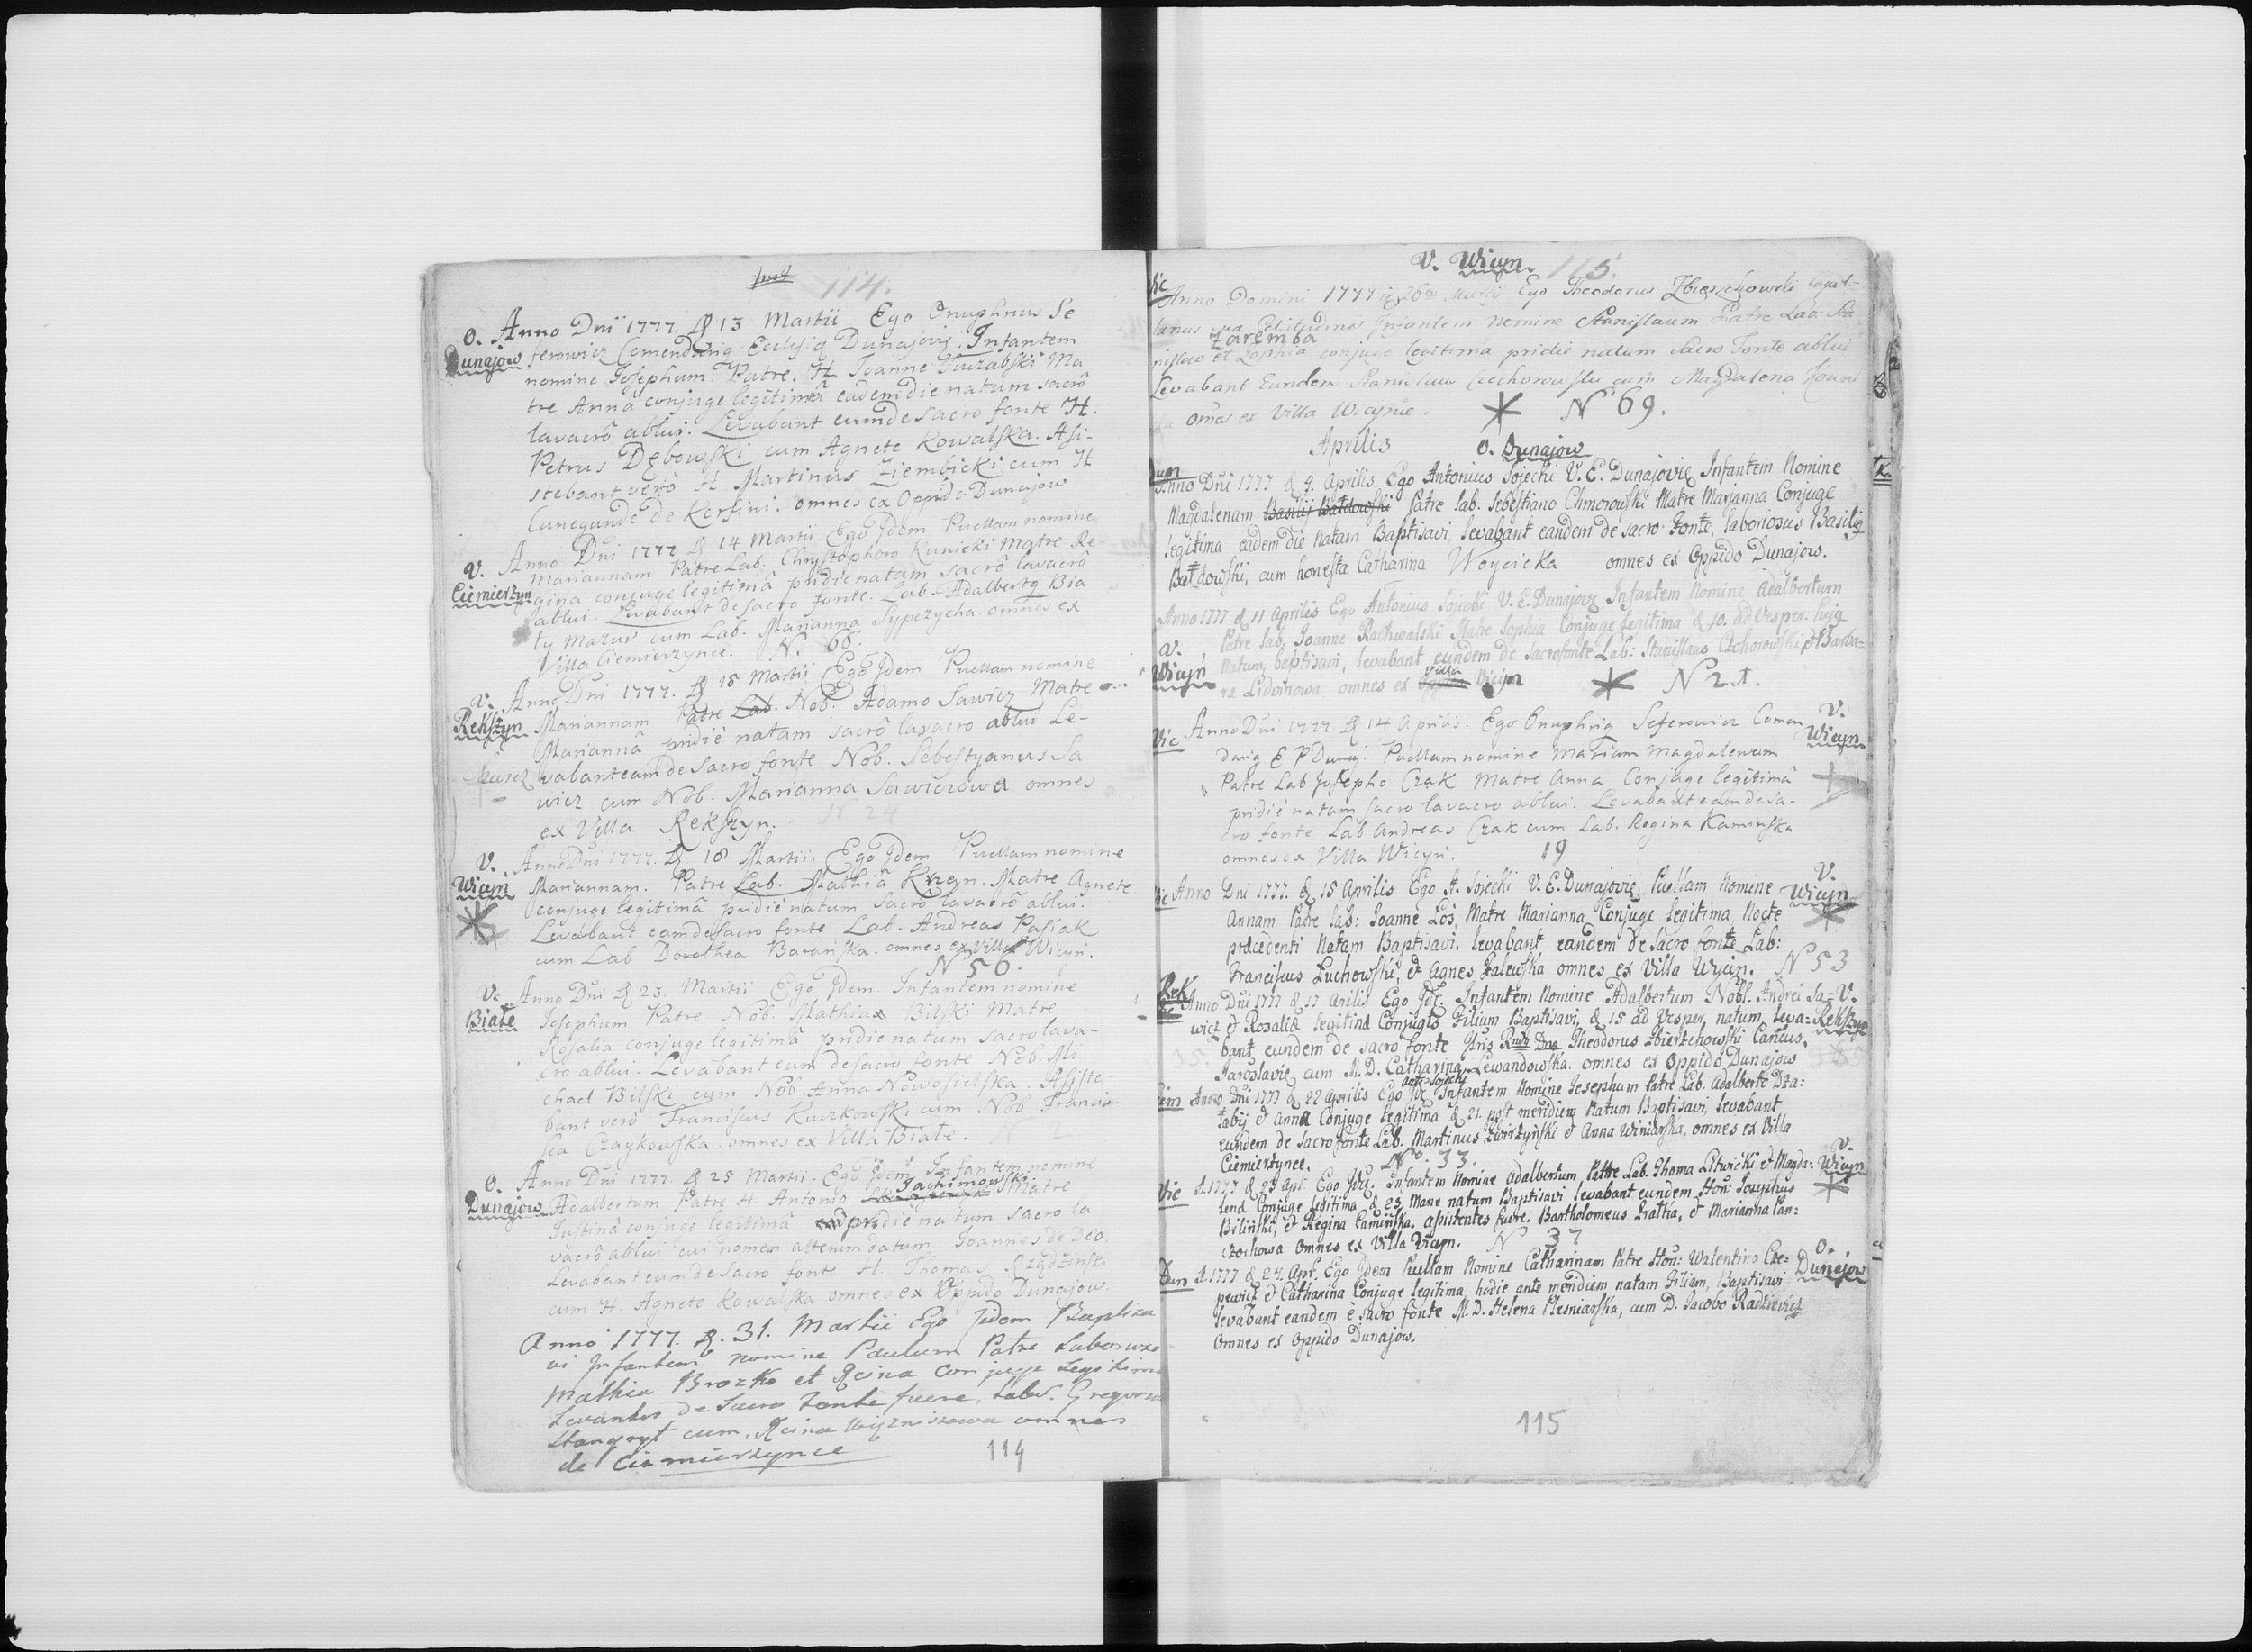 114.
O. Anno Dni 1777 d 13 Martii Ego Onuphrius Se
Dunajow ferowicz Comendariq Ecclesiq Dunajovis. Infantem
nomine Josephum Patre. H Joanne Ma
tre Annâ conjuge legitimâ eadem die natum sacrô
lavacrô ablui. Levabant eum de sacro fonte H.
Petrus Dębowski cum Agnete Kowalska. Asi-
stebant vero H Martinus Ziembicki cum H
Cunegunde de Kersini. omnes ex Oppido Dunajow
V. Anno Dni 1777 d 14 Martii Ego Jdem Puellam nomine
Ciemierzyn Mariannam Patre Lab. Chrystophoro Kunicki Matre Re-
gina conjuge legitimâ pridie natam sacrô lavacrô
ablui. Levabant de sacro fonte. Lab. Adalbertq Bia
ty Mazur cum Lab. Marianna Sypczycha. omnes ex
Villa Ciemierzynce. N. 66.
V. Anno Dni 1777. d 15 Martii Ego Jdem Puellam nomine
Rekszyn Mariannam Patre Lab. Nob. Adamo Sawicz Matre
Mariannâ pridie natam sacrô lavacro ablui Le-
vabant eam de sacro fonte Nob. Sebestyanus Sa
wicz cum Nob. Marianna Sawiczowa omnes
ex Villa Rekszyn. N 24
V. Anno Dni 1777. d. 18 Martii. Ego Jdem Puellam nomine
Wicyn Mariannam. Patre Lab. Mathiâ Matre Agnete
conjuge legitimâ pridie natum sacrô lavacrô ablui.
Levabant eam de sacro fonte Lab. Andreas Pasiak
cum Lab Dorothea Barańska. omnes ex Villa Wicyn.
N 50.
V. Anno Dni d 23. Martii. Ego Jdem. Infantem nomine
Białe Josephum Patre Nob. Mathias Bilski Matre
Rosalia conjuge legitimâ pridie natum sacro lava-
cro ablui. Levabant eum de sacro fonte Nob. Mi
chael Bilski cum Nob. Anna Nowosielska. Asiste-
bant vero Franciscus Kuczkowski cum Nob Francis-
sca Czaykowska. omnes ex Villa Białe. N 2
O. Anno Dni 1777. d 25 Martii. Ego Jdem Infantem nomine
Jachimowski
Dunajow Adalbertum Patre H. Antonio Matre
Justinâ conjuge legitimâ pridie natum sacro la
vacrô ablui cui nomen alterum datum Joannes de Deo.
Levabant eum de sacro fonte H. Thomas
cum H. Agnete Kowalska omnes ex Oppido Dunajow.
Anno 1777. d. 31. Martii Ego Jdem Baptiza
vi Infantem nomine Paulum Patre Laborioso
Mathia Brozko et Reina conjuge legitima
Levantes de Sacro Fonte fuere, Labor. Gregorius
Stangryt cum, Reina omnes
de Ciemierzynce
114
V. Wicyn 115.
Vic
Anno Domini 1777 26 Martij Ego Theodorus Zbierzchowski
Infantem nomine Stanislaum Patre Lab. Sta
Zaremba
nislao et Zophia conjuge legitima pridie natum Sacro Fonte ablui
Levabant Eundem Stanislaus Czechowski cum Magdalena
omes ex Villa Wicynie. N 69.
Aprilis O. Dunajow
Dun
Anno Dni 1777 d 4. Aprilis Ego Antonius Sojecki V. E. Dunajoviq Infantem Nomine
Magdalenam Basilij Bałdowski Patre Lab. Sebestiano Chmorowski Matre Marianna Conjuge
legitima eadem die natam Baptisavi, levabant eandem de sacro Fonte, laboriosus Basiliq
Bałdowski, cum honesta Catharina Woycicka omnes ex Oppido Dunajow.
Anno 1777 d 11 Aprilis Ego Antonius Sojecki V. E. Dunajovq Infantem Nomine Adalbertum
V. Patre Lab. Joanne Rachwalski Matre Sophia Conjuge legitima d 10. ad Vesper: hujq
Wicyn Natum, baptisavi, levabant eundem de sacro fonte Lab: Stanislaus et Barba-
Villa
ra Lidvinowa omnes ex Vicyn N 21.
Vic Anno Dni 1777. d 14 Aprilis. Ego Onuphriq Seferowicz Comen V.
dariq E P Dunij. Puellam nomine Mariam Magdalenam Wicyn
Patre Lab Josepho Czak Matre Anna Conjuge legitimâ
pridie natam sacro lavacro ablui. Levabant eam de sa-
cro fonte Lab Andreas Czak cum Lab. Regina Kaminska
omnes ex Villa Wicyn. 19
Vic Anno Dni 1777. d 15 Aprilis Ego A. Sojecki V. E. Dunajoviq Puellam Nomine V.
Annam Patre Lab: Joanne Łoś, Matre Marianna Conjuge legitima, Nocte Wicyn
præcedenti natam Baptisavi. levabant eandem de sacro fonte Lab:
Franciscus Łuchowski, et Agnes Galewska omnes ex Villa Wycin. N 53
Rek Anno Dni 1777 d 17 Arilis Ego Jdq. Infantem Nomine Adalbertum Nobl. Andrei Sa= V.
wicz et Rosaliæ legitima Conjugis Filium Baptisavi, d 15 ad Vesper. natum, leva= Rekszyn
bant eundem de sacro fonte Theodorus Zbierzchowski Cancus.
Jaroslaviæ cum M. D. Catharina Lewandowska. omnes ex Oppido Dunajow
Ant. Sojecki
Ciem Anno Dni 1777 d 22 Aprilis Ego Infantem Nomine Josephum Patre Lab. Adalberto Dza=
łabij et Anna Conjuge legitima d 21. post meridiem Natum Baptisavi, levabant
eundem de sacro fonte Lab. Martinus et Anna Winiarska, omnes ex Villa
Ciemierzynce. No. 33.
Vic A. 1777 d 23 Apr. Ego Jdq. Infantem Nomine Adalbertum Patre Lab. Thoma Litwicki et Magda= V. Wicyn
lena Conjuge legitima d 23 Mane natum Baptisavi levabant eundem Hon: Josephus
Biliński, et Regina Camińska. assistentes fuere. Bartholomeus et Marianna Pan=
czochowa Omnes ex Villa Vicyn. N 37
Dun A. 1777 d 24. Apr. Ego Jdem Puellam Nomine Catharinam Patre Hon: Walentino Cze= O.
pewicz et Catharina Conjuge legitima, hodie ante meridiem natam Filiam, Baptisavi Dunajow
levabant eandem è sacro fonte M. D. Helena Plesniarska, cum D. Jacobo Radkiewicz
Omnes ex Oppido Dunajow.
115